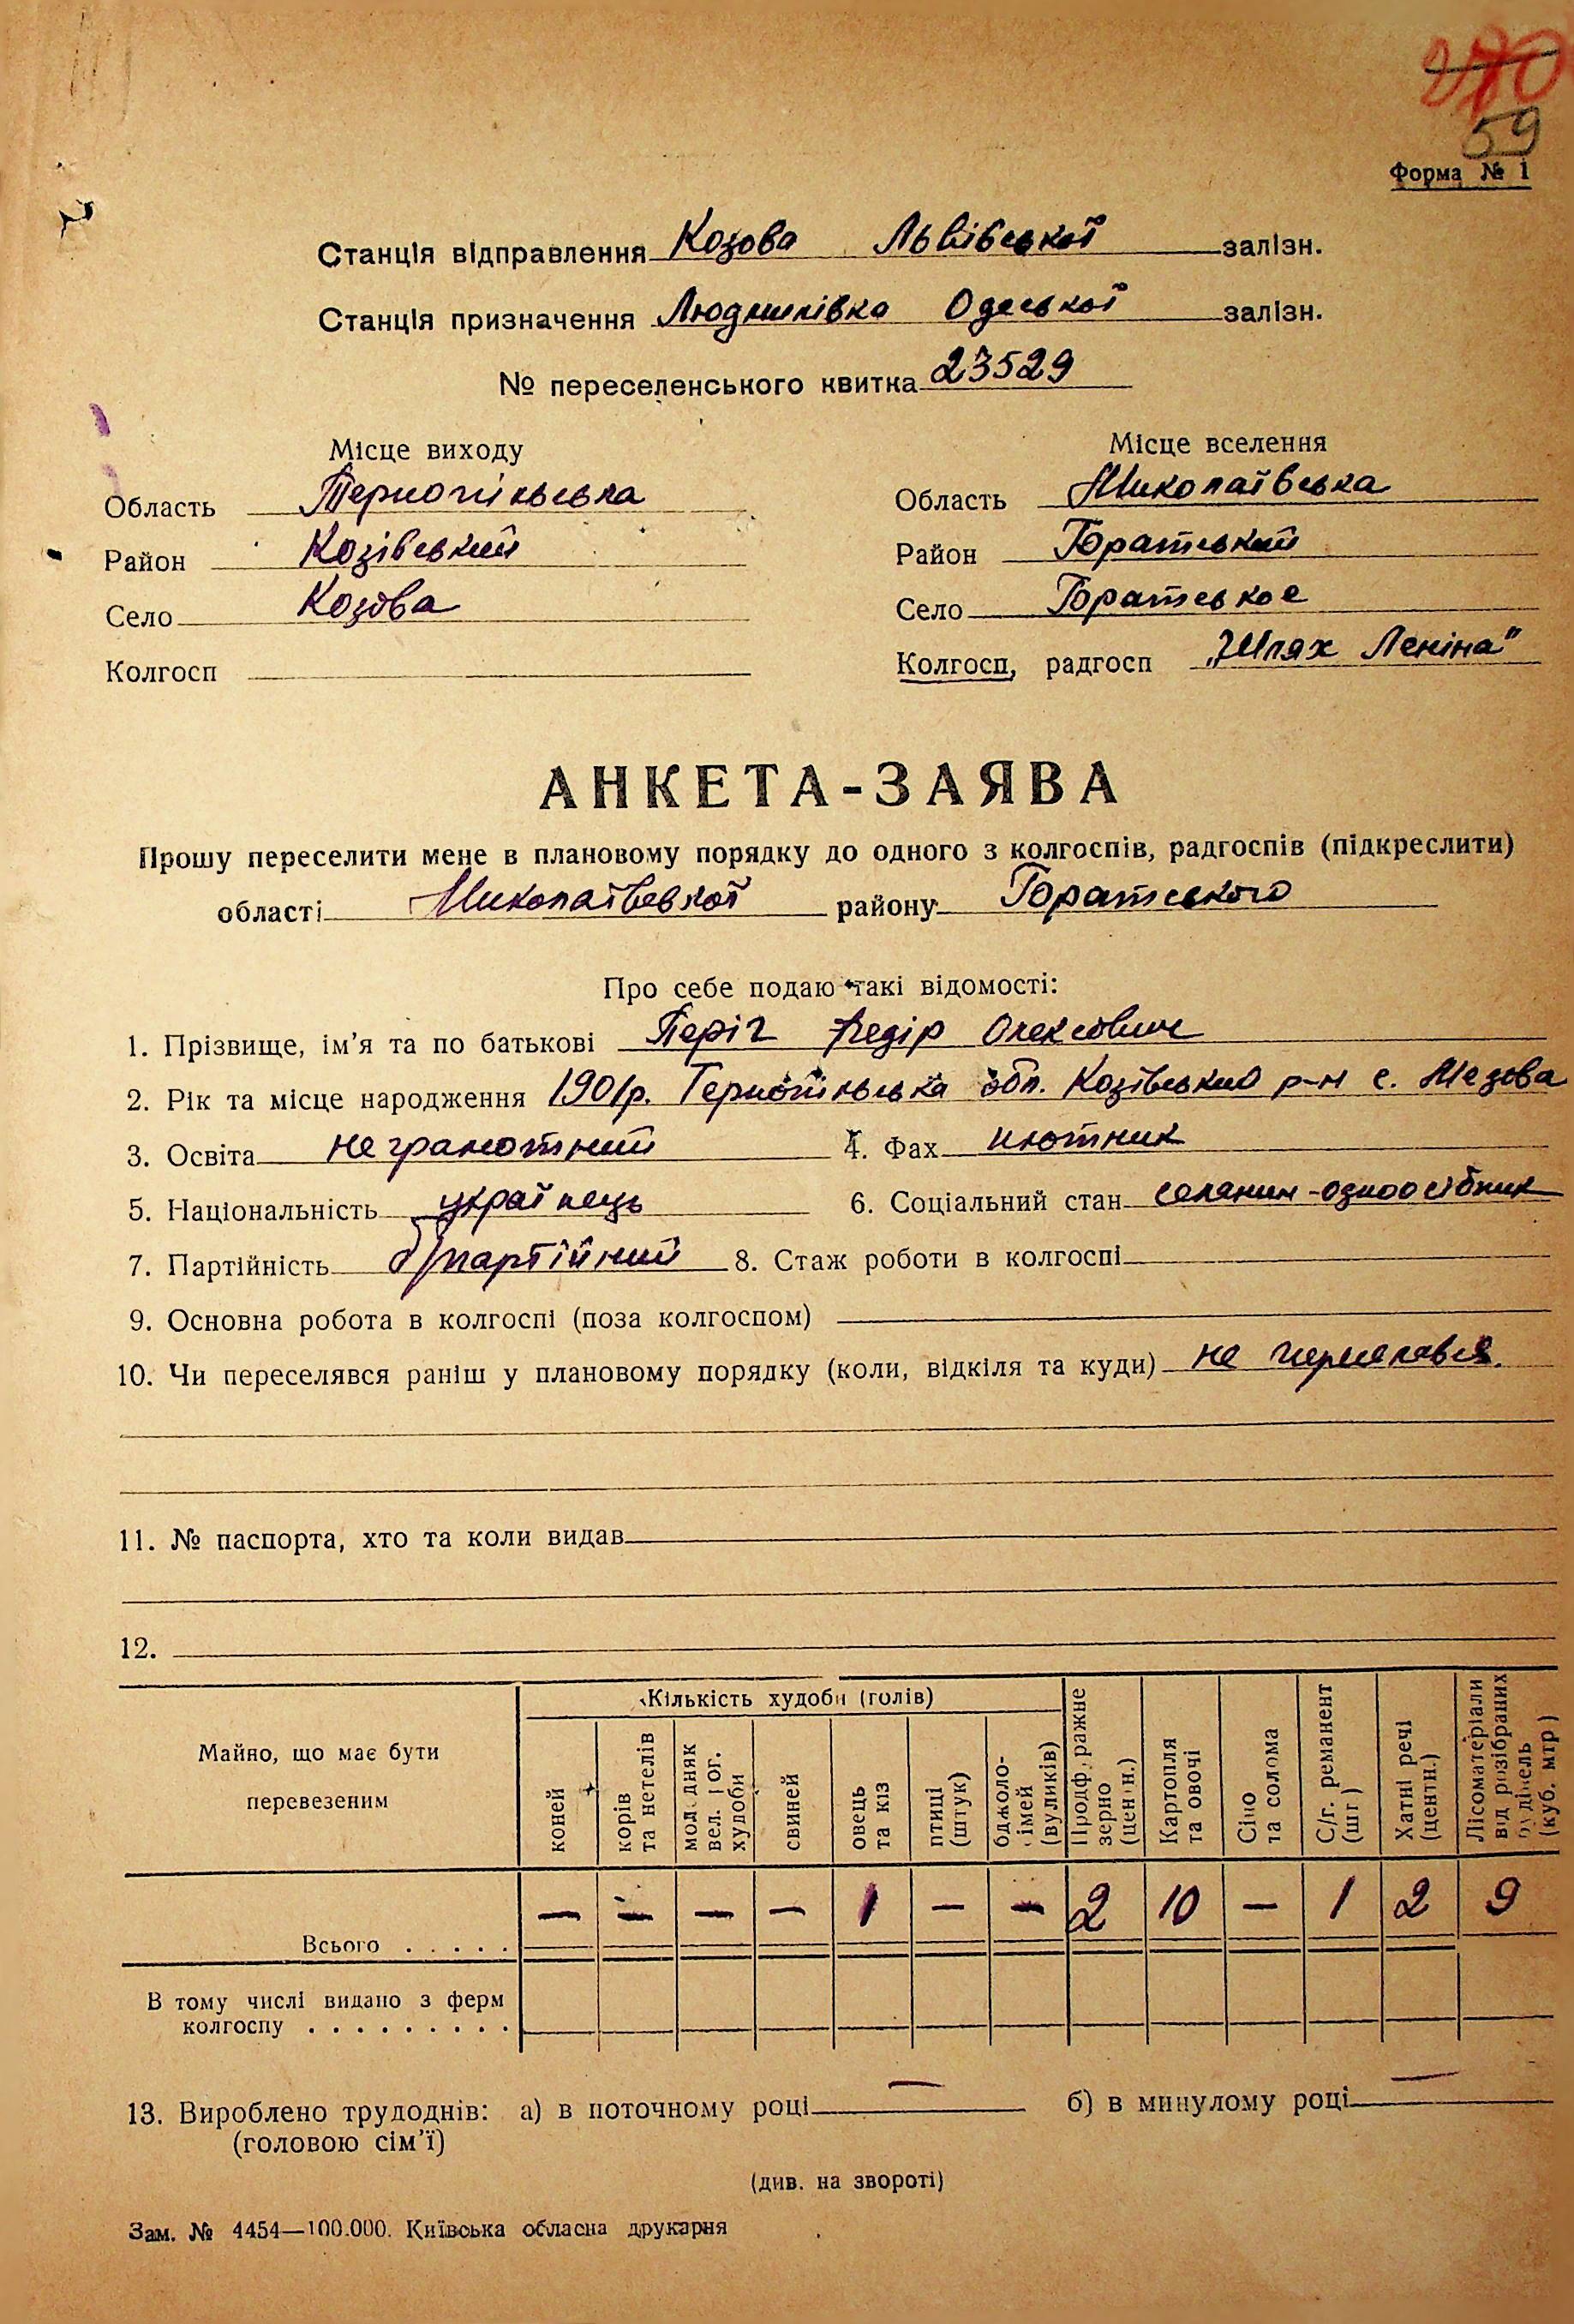 270
59
Форма № 1
Станція відправлення Козова Львівської залізн.
Станція призначення Людмилівка Одеської залізн.
№ переселенського квитка 23529
Місце виходу
Область Тернопільська
Район Козівський
Село Козова
Колгосп
Місце вселення
Область Миколаївська
Район Братський
Село Братське
Колгосп, радгосп „Шлях Леніна"
АНКЕТА-ЗАЯВА
Прошу переселити мене в плановому порядку до одного з колгоспів, радгоспів (підкреслити)
області Миколаївської району Братського
Про себе подаю такі відомості:
1. Прізвище, ім'я та по батькові Періг Федір Олексович
2. Рік та місце народження 1901р. Тернопільська обл. Козівський р-н с.
3. Освіта неграмотний 4. Фах
5. Національність українець 6. Соціальний стан селянин-одноосібник
7. Партійність б/партійний 8. Стаж роботи в колгоспі
9. Основна робота в колгоспі (поза колгоспом)
10. Чи переселявся раніш у плановому порядку (коли, відкіля та куди) не
11. № паспорта, хто та коли видав
12.
Майно, що має бути перевезеним
Кількість худоби (голів)
коней
корів та нетелів
молодняк вел. рог. худоби
свиней
овець та кіз
птиці (штук)
бджолосімей (вуликів)
Продфуражне зерно (центн.)
Картопля та овочі
Сіно та солома
С/г. реманент (шт.)
Хатні речі (центн.)
Лісоматеріали від розібраних будівель (куб. мтр)
Всього . . . . . — — — — 1 — — 2 10 — 1 2 9
В тому числі видано з ферм
колгоспу . . . . . . . . .
13. Вироблено трудоднів: а) в поточному році — б) в минулому році —
(головою сім'ї)
(див. на звороті)
Зам. № 4454—100.000. Київська обласна друкарня